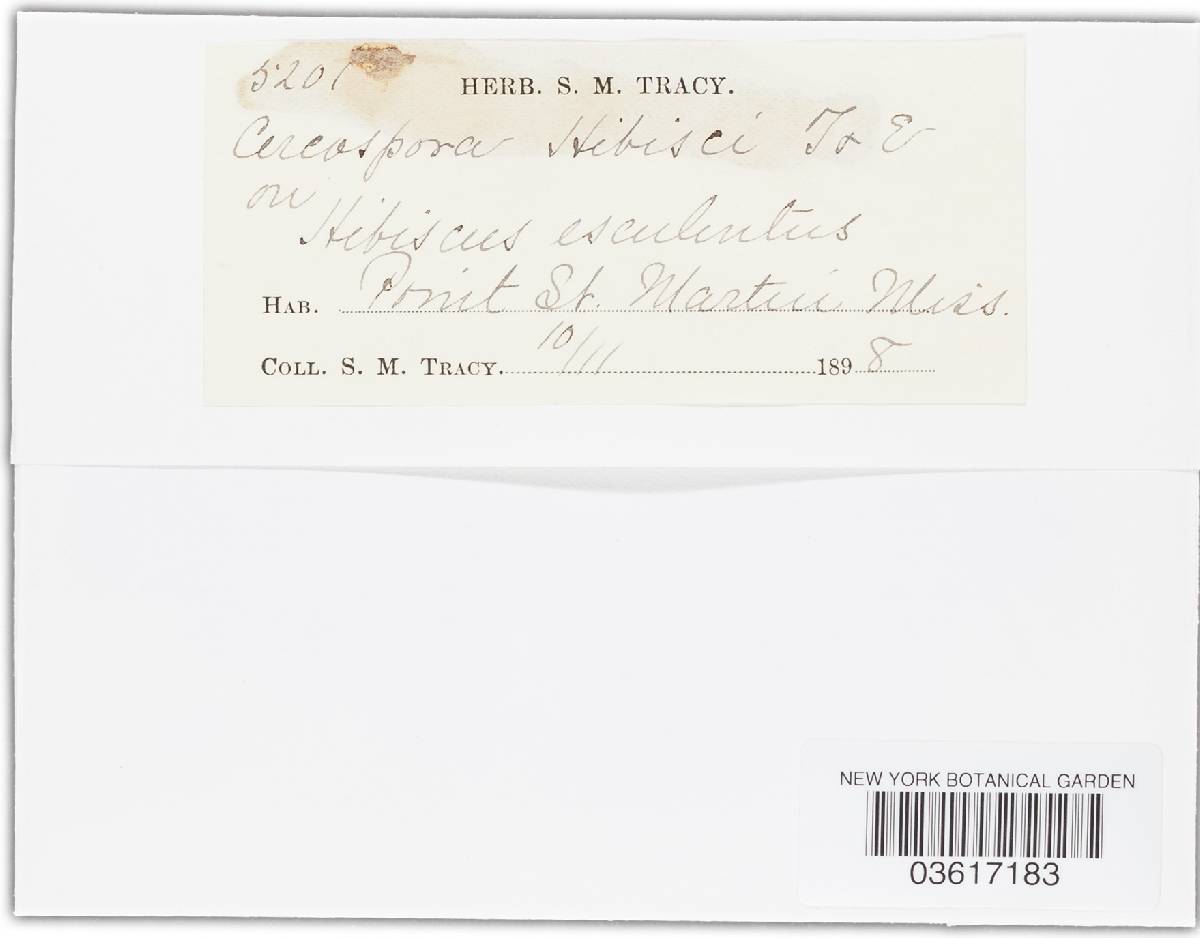 5201
HERB. S. M. TRACY.
Cercospora Hibisci T & E
on
Hibiscus esculentus
HAB. Point St. Martin Miss.
COLL. S. M. TRACY. 10/11 1898
NEW YORK BOTANICAL GARDEN
03617183